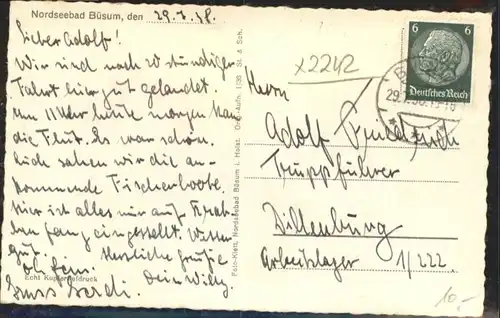 Nordseebad Büsum, den 29.7.38.
Lieber Adolf!
Wir sind nach 20 stündiger
Fahrt hier gut gelandet.
Um 11 Uhr heute morgen kam
die Flut. Es war schön.
Auch sahen wir die an-
kommende Fischerboote.
Hier ist alles nur auf Krab
ben fang eingestellt. Wetter
gut. Herzliche Grüße
Dein Willy.
Gruss Gerdi.
Echt Kupfertiefdruck
Foto-Klett, Nordseebad Büsum i. Holst. Orig.-Aufn. 1135 St. & Sch.
x2242
6 6
Deutsches Reich
29.7.38
Herrn
Adolf
Truppführer
Dillenburg
Arbeitslager 1/222.
10,-